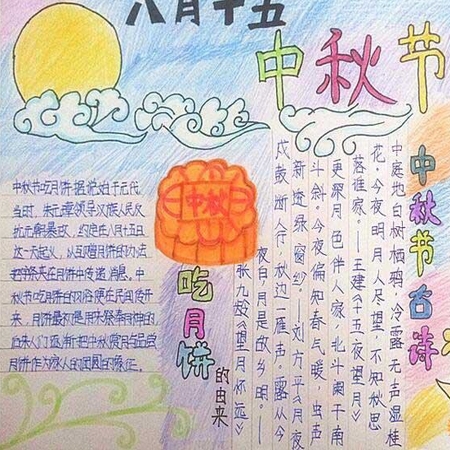 八月十五
中秋节
中秋节吃月饼据说始于元代
当时，朱元璋领导汉族人民反
抗元朝暴政，约定在八月十五日
这一天起义，以互赠月饼的办法
把字条夹在月饼中传递消息。中
秋节吃月饼的习俗便在民间传开
来。月饼最初是用来祭奉月神的
后来人们逐渐把中秋赏月与品尝
月饼作为家人的团圆的象征。
中秋
吃月饼
的由来
中秋节古诗
中庭地白树栖鸦，冷露无声湿桂
花。今夜明月人尽望，不知秋思
落谁家。—王建《十五夜望月》
更深月色伴人家，北斗阑干南
斗斜。今夜偏知春气暖，虫声
新透绿窗纱。—刘方平《月夜
戍鼓断人行，秋边一雁声。露从今
夜白，月是故乡明。—
张九龄《望月怀远》